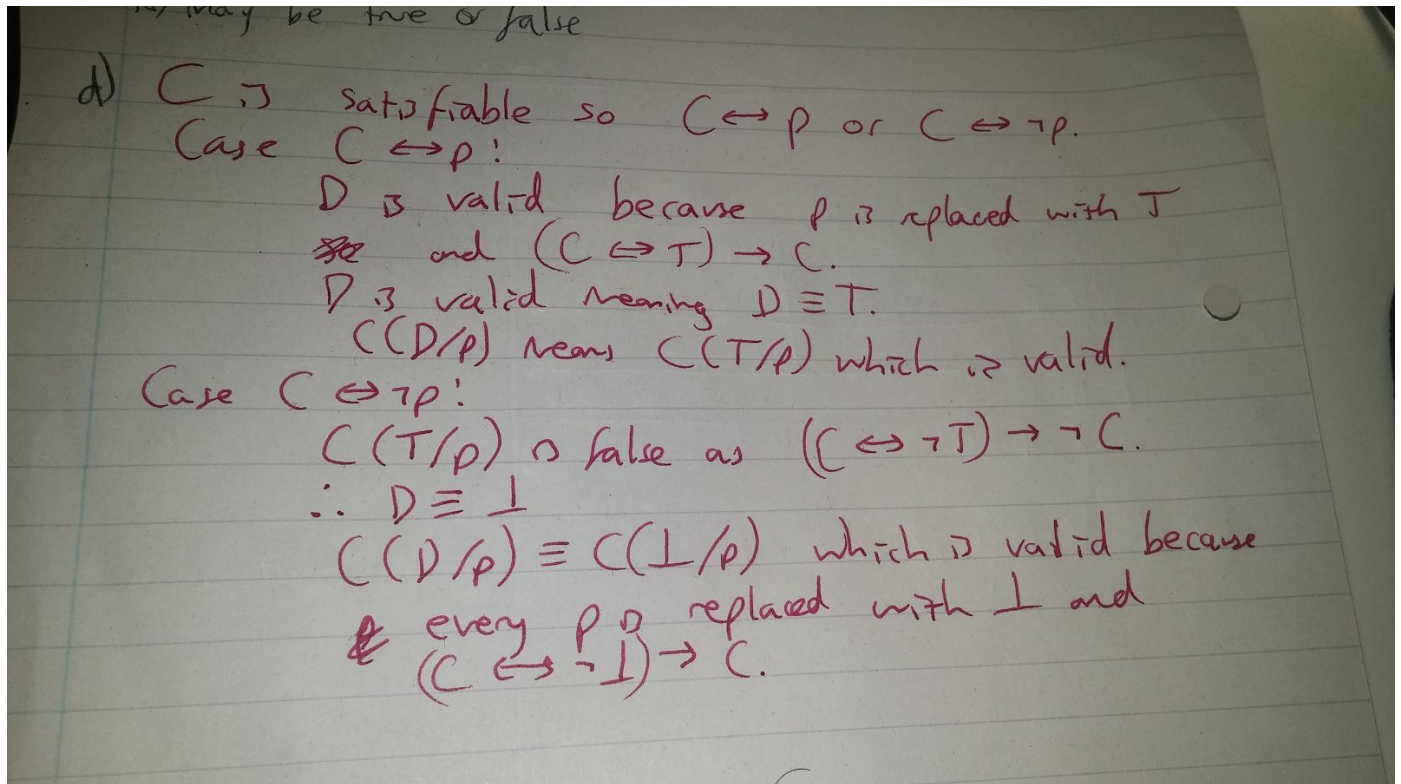 may be true or false
d) C is satisfiable so C ↔ p or C ↔ ¬p.
Case C ↔ p:
D is valid because p is replaced with T
and (C ↔ T) → C.
D is valid meaning D ≡ T.
C(D/p) means C(T/p) which is valid.
Case C ↔ ¬p:
C(T/p) is false as (C ↔ ¬T) → ¬C.
∴ D ≡ ⊥
C(D/p) ≡ C(⊥/p) which is valid because
every p is replaced with ⊥ and
(C ↔ ¬⊥) → C.